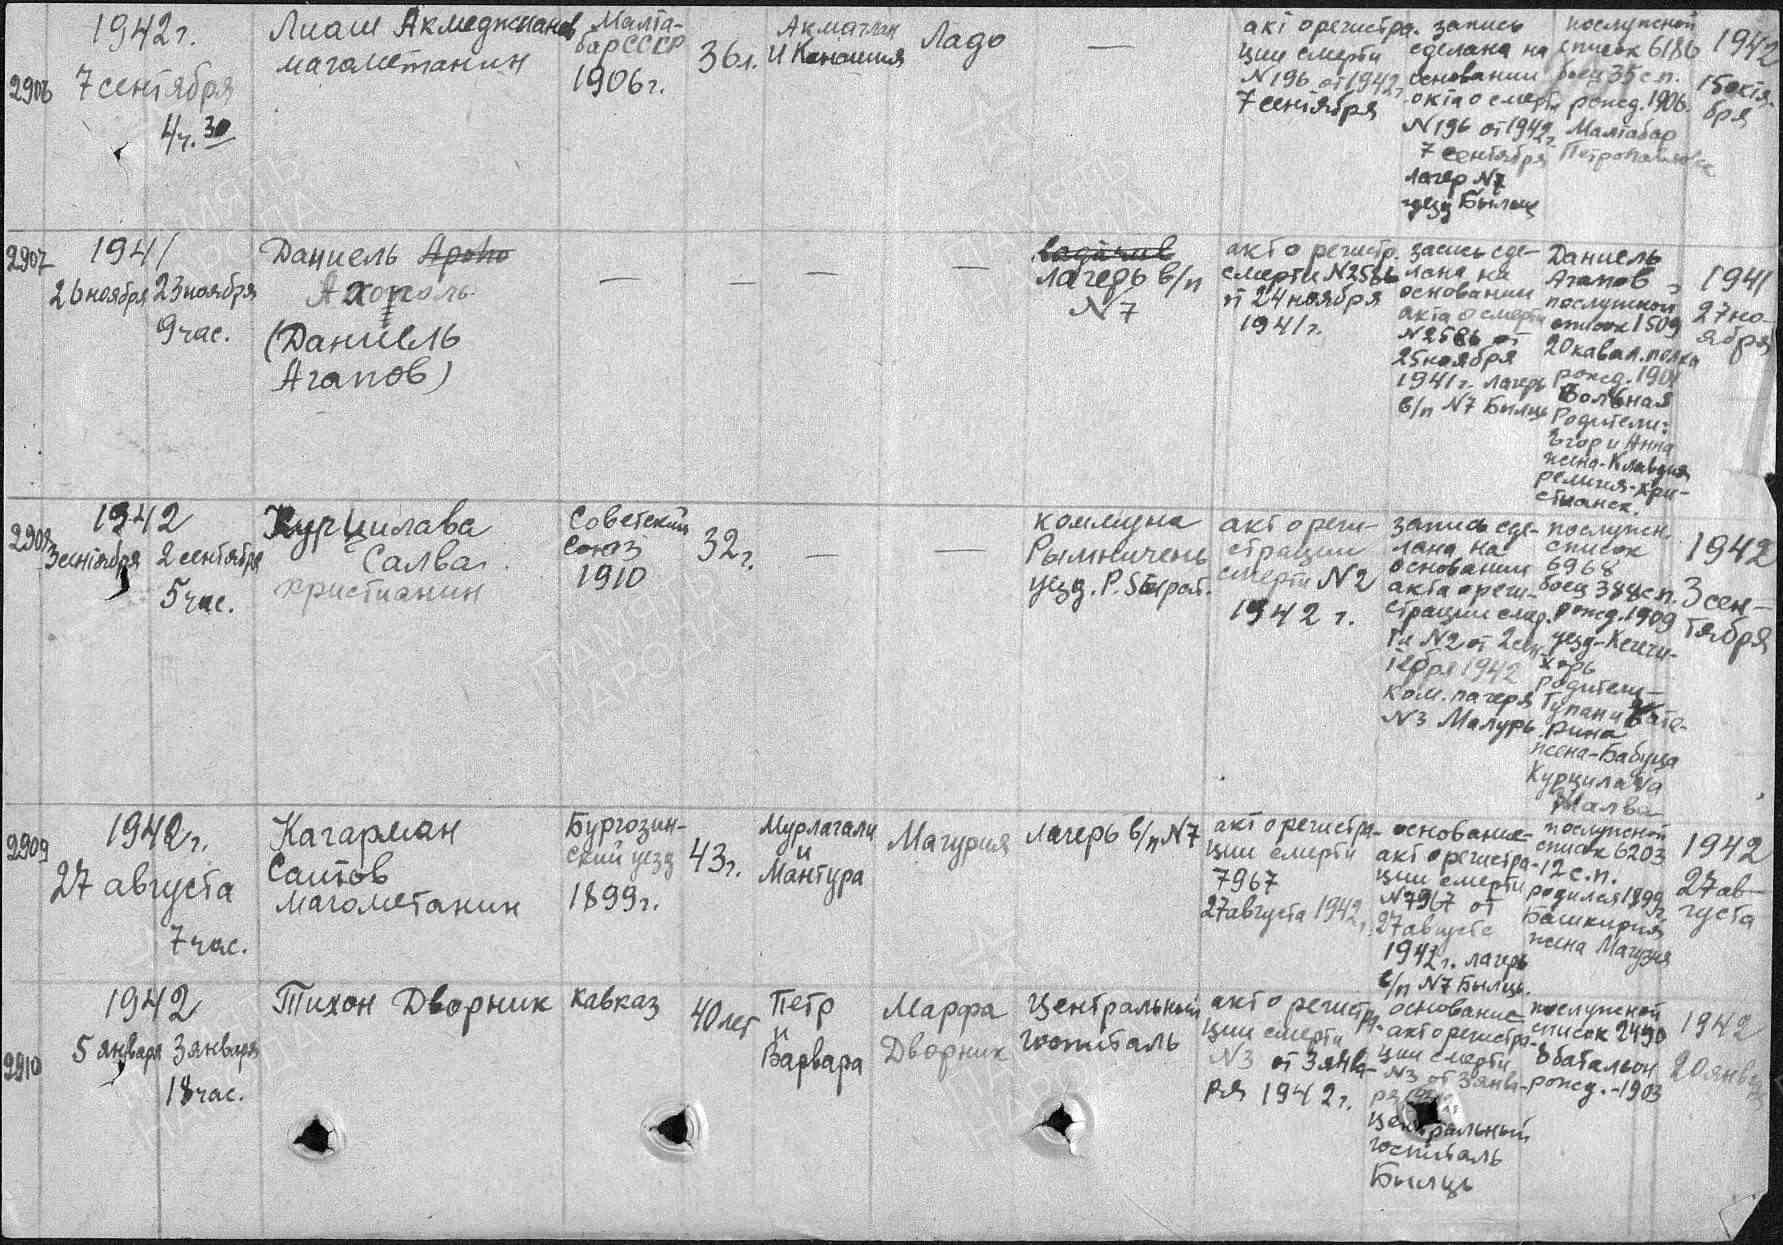 2906
1942 г.
7 сентября
4 ч. 30
Лиаш Акмеджанов
магометанин
Малта-
бар СССР
1906 г.
36 л.
Акматлан
и Канашия
Ладо
—
акт о регистра-
ции смерти
N196 от 1942 г.
7 сентября
запись
сделана на
основании
акта о смерти
N196 от 1942 г.
7 сентября
лагер N7
уезд Былць
послужной
список 6186
боец 35 с.п.
рожд. 1906.
Малтабар
1942
15 октя-
бря
2907
1941
26 ноября 23 ноября
9 час.
Даниель Apoho
Ахополь
(Даниель
Агапов)
—
—
—
—
лагерь в/п
N7
акт о регистр.
смерти N2586
от 24 ноября
1941 г.
запись сде-
лана на
основании
акта о смерти
N2586 от
25 ноября
1941 г. лагерь
в/п N7 Былць
Даниель
Агапов
послужной
список 1509
20 кавал. полка
рожд. 1901
Вольная
Родители:
Егор и Анна
жена-Клавдия
религия-хри-
стианск.
1941
27 но-
ября
2908
1942
3 сентября 2 сентября
5 час.
Курцилава
Салва
христианин
Советский
Союз
1910
32 г.
—
—
коммуна
Рымничень
уезд. Р. Sтрат.
акт о реги-
страции
смерти N2
1942 г.
запись сде-
лана на
основании
акта о реги-
страции смер-
ти N2 от 2 сен-
тября 1942
ком. лагеря
N3 Малурь
послужн.
список
6968
боец 388 с.п.
рожд. 1909
уезд-Кеичи-
хорь
родители-
Гупан и Кате-
рина
жена-Бабуца
Курцилаva
Малва
1942
3 сен-
тября
2909
1942 г.
27 августа
7 час.
Кагарман
Саитов
магометанин
Бургозин-
ский уезд
1899 г.
43 г.
Мурлагали
и
Мантура
Магурия
лагерь в/п N7
акт о регистра-
ции смерти
7967
27 августа 1942 г.
основание-
акт о регистра-
ции смерти
N7967 от
27 августа
1942 г. лагерь
в/п N7 Былць.
послужной
список 6203
12 с.п.
родился 1899 г.
Башкирия
жена Магузия
1942
27 ав-
густа
2910
1942
5 января 3 января
18 час.
Тихон Дворник
Кавказ
40 лет
Петр
и
Варвара
Марфа
Дворник
Центральный
госпиталь
акт о регистра-
ции смерти
N3 от 3 янва-
ря 1942 г.
основание-
акт о регистра-
ции смерти
N3 от 3 янва-
ря
Центральный
госпиталь
Былць
послужной
список 2490
8 батальон
рожд.-1903
1942
20 января
ПАМЯТЬ
НАРОДА